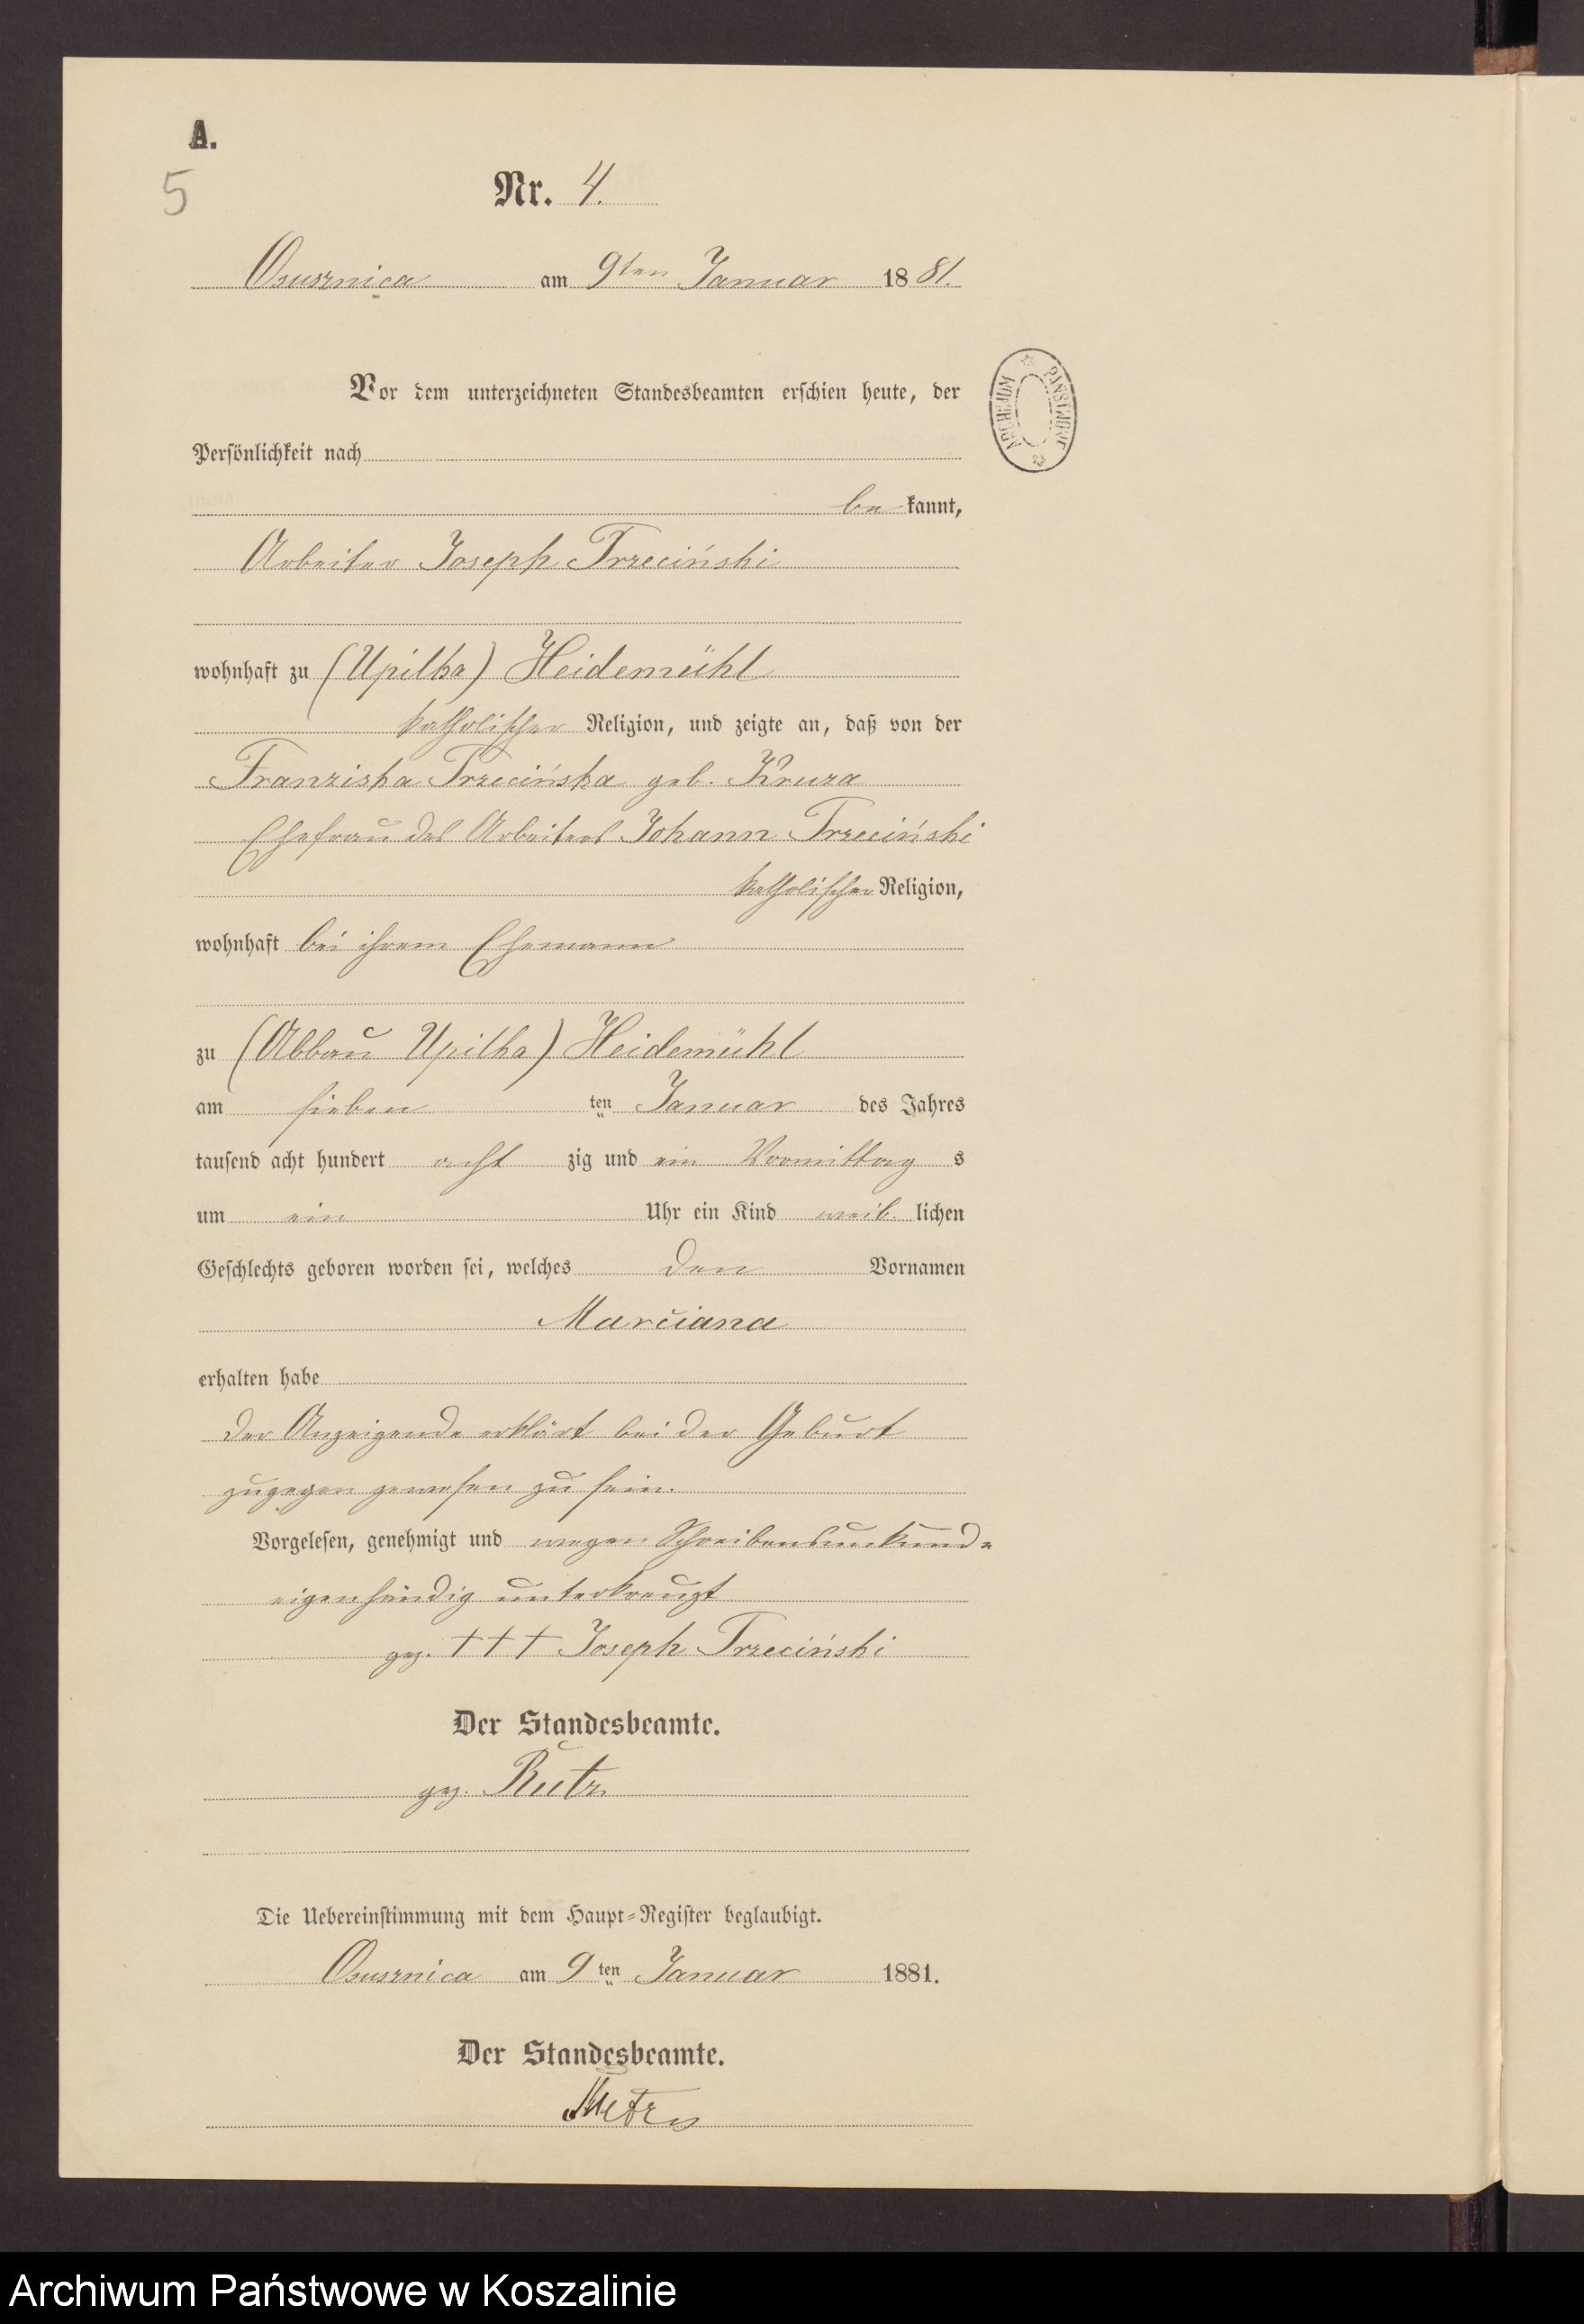 A.
5
Nr. 4.
Osusznica am 9ten Januar 1881.
Vor dem unterzeichneten Standesbeamten erschien heute, der
Persönlichkeit nach
be kannt,
Arbeiter Joseph Trzeciński
wohnhaft zu (Upilka) Heidemühl
katholischer Religion, und zeigte an, daß von der
Franziska Trzecińska geb. Kruza
Ehefrau des Arbeiters Johann Trzeciński
katholischer Religion,
wohnhaft bei ihrem Ehemann
zu (Abbau Upilka) Heidemühl
am sieben ten Januar des Jahres
tausend acht hundert acht zig und ein Vormittag s
um ein Uhr ein Kind weib. lichen
Geschlechts geboren worden sei, welches den Vornamen
Marciana
erhalten habe
Der Anzeigende erklärt bei der Geburt
zugegen gewesen zu sein.
Vorgelesen, genehmigt und wegen Schreibensunkunde
eigenhändig unterkreuzt
gez. ††† Joseph Trzeciński
Der Standesbeamte.
gez. Rutz
Die Uebereinstimmung mit dem Haupt=Register beglaubigt.
Osusznica am 9 ten Januar 1881.
Der Standesbeamte.
ARCHIWUM PAŃSTWOWE
Archiwum Państwowe w Koszalinie